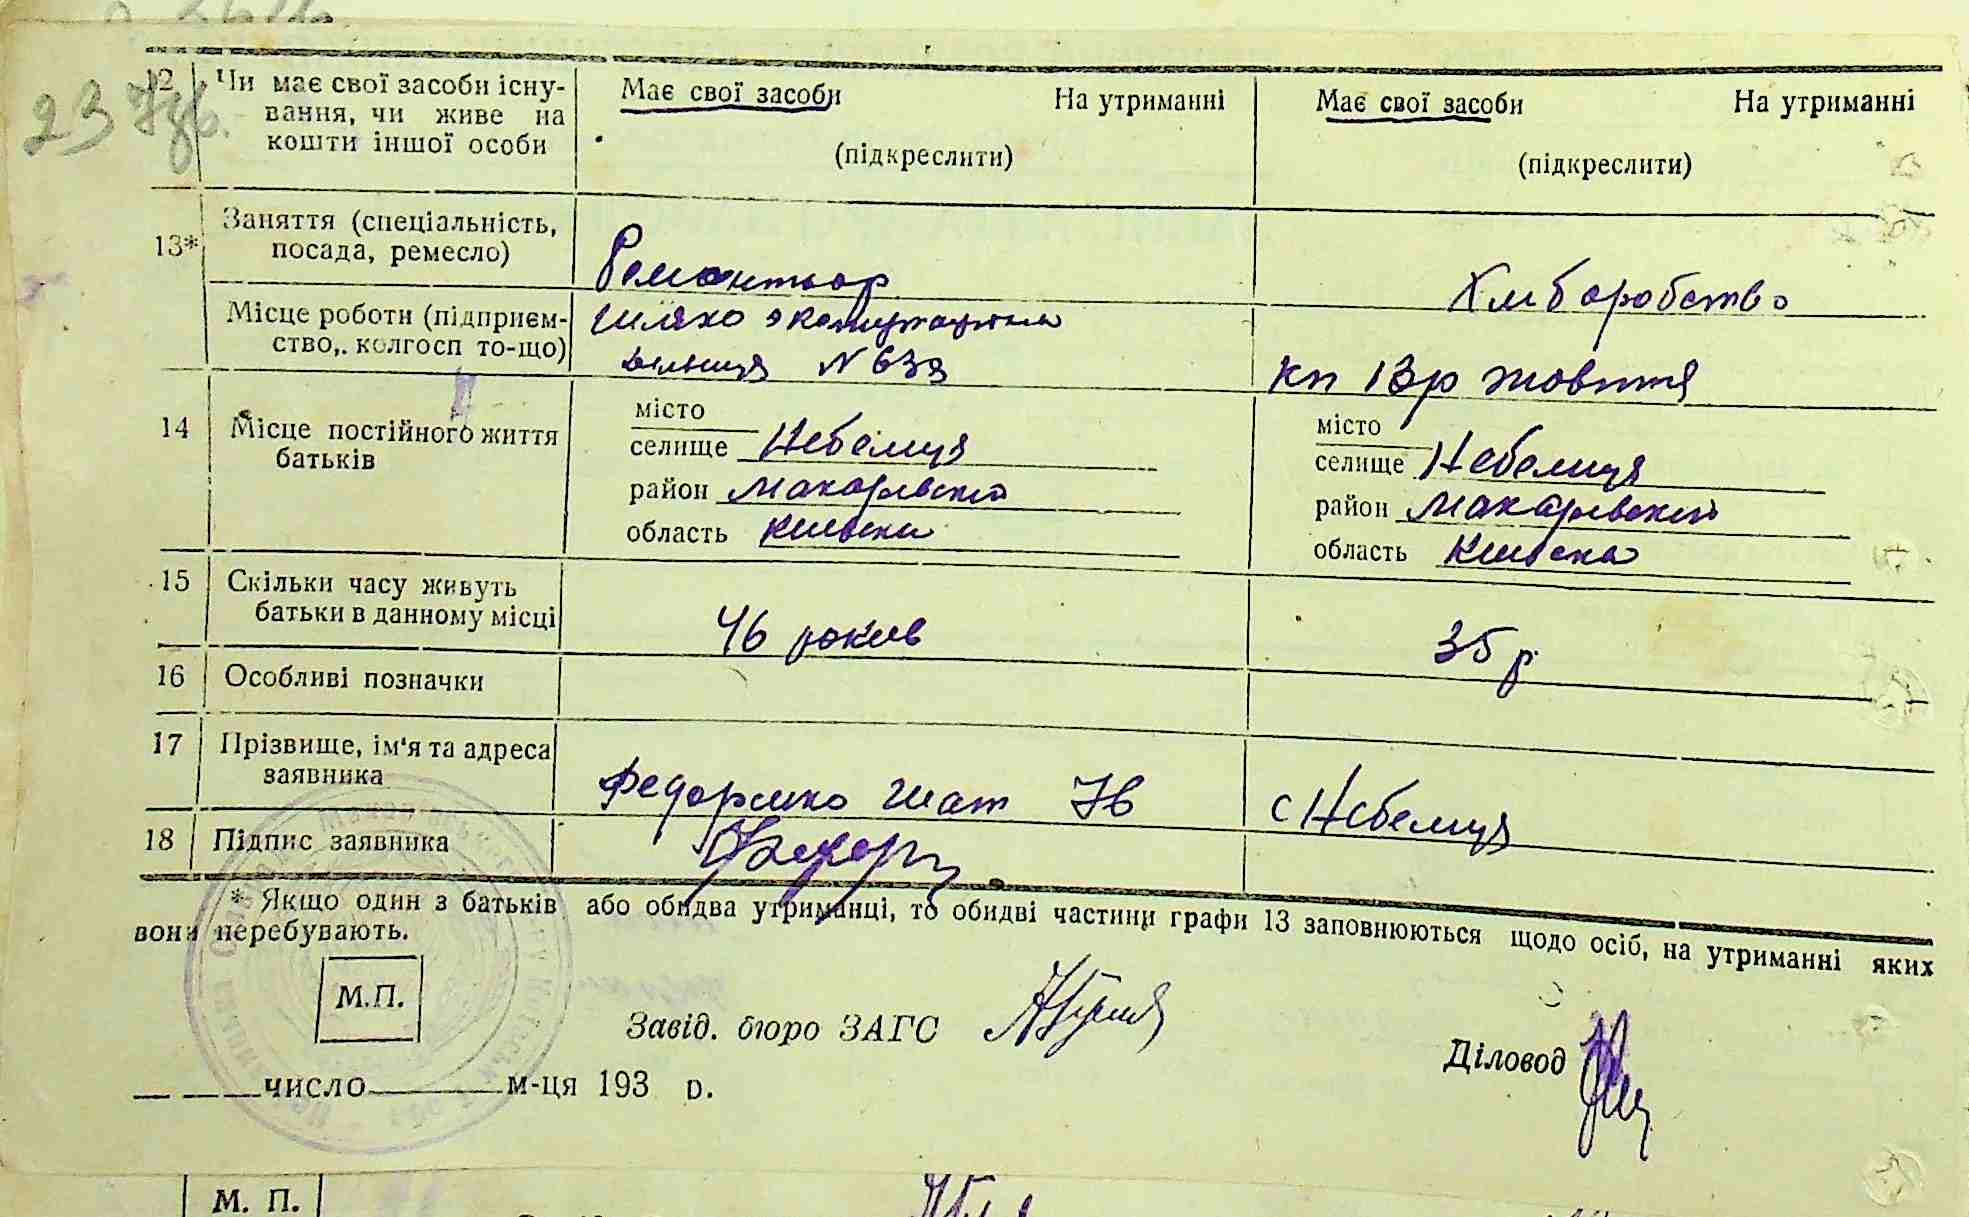 23
12 Чи має свої засоби існу-
вання, чи живе на
кошти іншої особи
Має свої засоби На утриманні
(підкреслити)
Має свої засоби На утриманні
(підкреслити)
13* Заняття (спеціальність,
посада, ремесло)
Ремонтьор
Хлиборобство
Місце роботи (підприєм-
ство,. колгосп то-що)
шляхо
дільниця N 63
кп 13р жовття
14 Місце постійного життя
батьків
місто
селище Небелиця
район Макаривский
область Киівски
місто
селище Небелиця
район Макаривский
область Киівска
15 Скільки часу живуть
батьки в данному місці
46 рокив
35 р
16 Особливі позначки
17 Прізвище, ім'я та адреса
заявника
Федоренко Ів с Небелиця
18 Підпис заявника
* Якщо один з батьків або обидва утриманці, то обидві частини графи 13 заповнюються щодо осіб, на утриманні яких
вони перебувають.
М.П.
Завід. бюро ЗАГС
Діловод
число м-ця 193 р.
М. П.